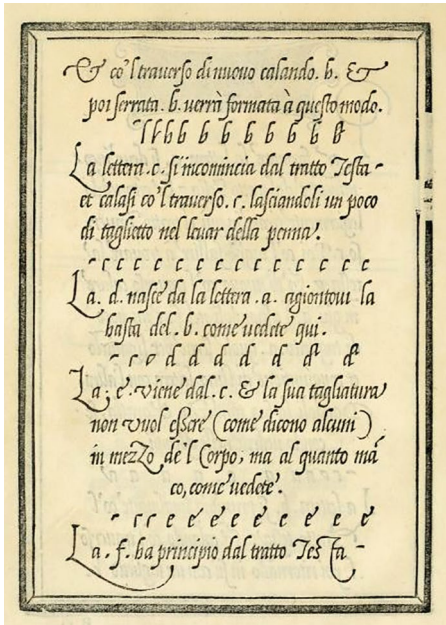 & co'l trauerso di nuouo calando. b. &
poi serrata. b. verrà formata à questo modo.
b b b b b b b b b
La lettera .c. si incomincia dal tratto Testa-
et calasi co'l trauerso. c. lasciandoli un poco
di taglietto nel leuar della penna'.
- r c c c c c c c c c c c c
La. d. nasce da la lettera .a. agiontoui la
hasta del .b. come uedete qui.
- r c o d d d d d d d
La; e. viene dal .c. & la sua tagliatura
non vuol essere (come dicono alcuni)
in mezzo de'l Corpo, ma al quanto mā
co, come uedete'.
- r c c e e e e e e e e
La .f. ha principio dal tratto Testa-